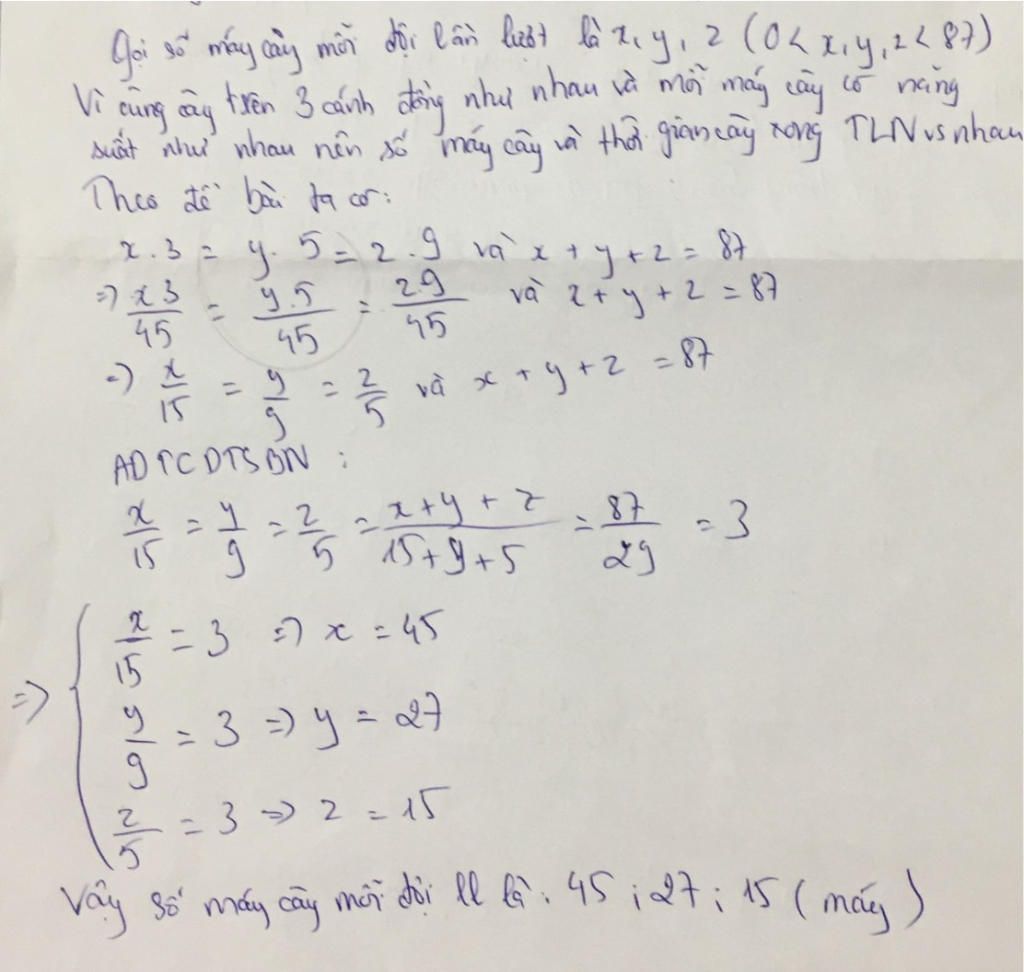 Gọi số máy cày mỗi đội lần lượt là x, y, z (0 < x, y, z < 87)
Vì cùng cày trên 3 cánh đồng như nhau và mỗi máy cày có năng
suất như nhau nên số máy cày và thời gian cày xong TLN vs nhau
Theo đề bài ta có:
x.3 = y.5 = z.9 và x + y + z = 87
=> x3/45 = y.5/45 = z.9/45 và x + y + z = 87
=> x/15 = y/9 = z/5 và x + y + z = 87
ADTCDTSBN :
x/15 = y/9 = z/5 = x+y+z/15+9+5 = 87/29 = 3
=> { x/15 = 3 => x = 45
y/9 = 3 => y = 27
z/5 = 3 => z = 15
Vậy số máy cày mỗi đội ll là: 45 ; 27 ; 15 (máy)